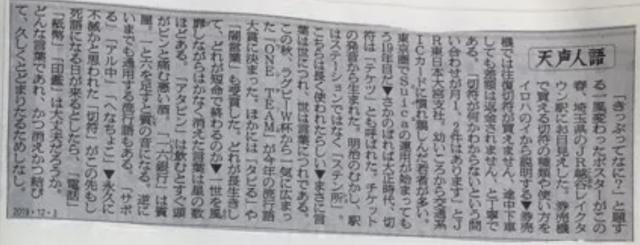 天声人語
「きっぷってなに？」と題す
る一風変わったポスターがこの
春、埼玉県のJR越谷レイクタ
ウン駅にお目見えした。券売機
で買える切符の種類や使い方を
イロハのイから説明する▼券売
機では往復切符が買えません、途中下車
しても差額は返金されません、と丁寧で
ある。「切符が何かわからないという問
い合わせが月1、2件はあります」とJ
R東日本大宮支社。幼いころから交通系
ICカードに慣れ親しんだ若者が多い。
東京圏でSuicaの運用が始まっても
う19年目だ▼さかのぼれば大正時代、切
符は「テケツ」とも呼ばれた。チケット
の発音から生まれた。明治のむかし、駅
はステーションではなく「ステン所」。
こちらは長く使われたらしい▼まさに言
葉は世につれ、世は言葉につれである。
この秋、ラグビーW杯から一気に広まっ
た「ONE TEAM」が今年の流行語
大賞に決まった。ほかには「タピる」や
「闇営業」も受賞した。どれが長生きし
て、どれが短命で終わるのか▼世を風
靡しながらはかなく消えた言葉は星の数
ほどある。「アタピン」は飲むとすぐ頭
がピンと痛む悪い酒。「一六銀行」は質
屋。一と六を足すと質の音になる。逆に
いまでも通用する流行語もある。「サボ
る」「アル中」「へなちょこ」▼永久に
不滅かと思われた「切符」がこの先もし
死語になる日が来るとしたら、「電話」
「紙幣」「印鑑」は大丈夫だろうか。
どんな言葉であれ、かつ消えかつ結び
て、久しくとどまりたるためしなし。
2019・12・3